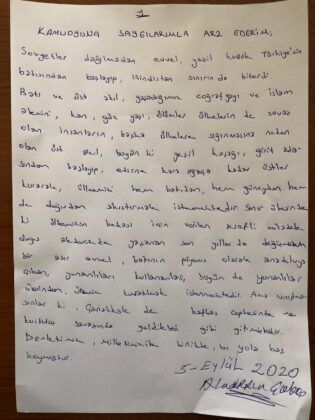 1
KAMUOYUNA SAYGILARIMLA ARZ EDERİM;
Sovyetler dağılmadan evvel, yeşil kuşak Türkiye'nin
batısından başlayıp, Hindistan sınırında biterdi.
Batı ve üst akıl, yaşadığımız coğrafyayı ve islam
alemini, kan, göz yaşı, ölümler ülkelerin de savaş
olan insanların, başka ülkelere sığınmasına neden
olan üst akıl, bugün ki yeşil kuşağı, girit ada-
sından başlayıp, edirne kara ağaca kadar üstler
kurarak, ülkemizi hem batıdan, hem güneyden hem
de doğudan sıkıştırmak istemektedir sınır ülkesinde
ki ülkemizin bekası için verilen mücadele
doğu akdenizde yaşanan son yıllar da değinerek
bir asır evvel, batının piyonu olarak anadoluya
çıkan, yunanlıları kullananlar, bugün de yunanlılar
üzerinden, ülkemizi kuşatmak istenmektedir. Ama unutma-
sınlar ki, Çanakkale de kafkas cephesinde ve
kurtuluş savaşında geldikleri gibi gitmişlerdir.
Devletimizle, milletimizle birlikte, bu yola baş
koymuştur.
5-Eylül 2020